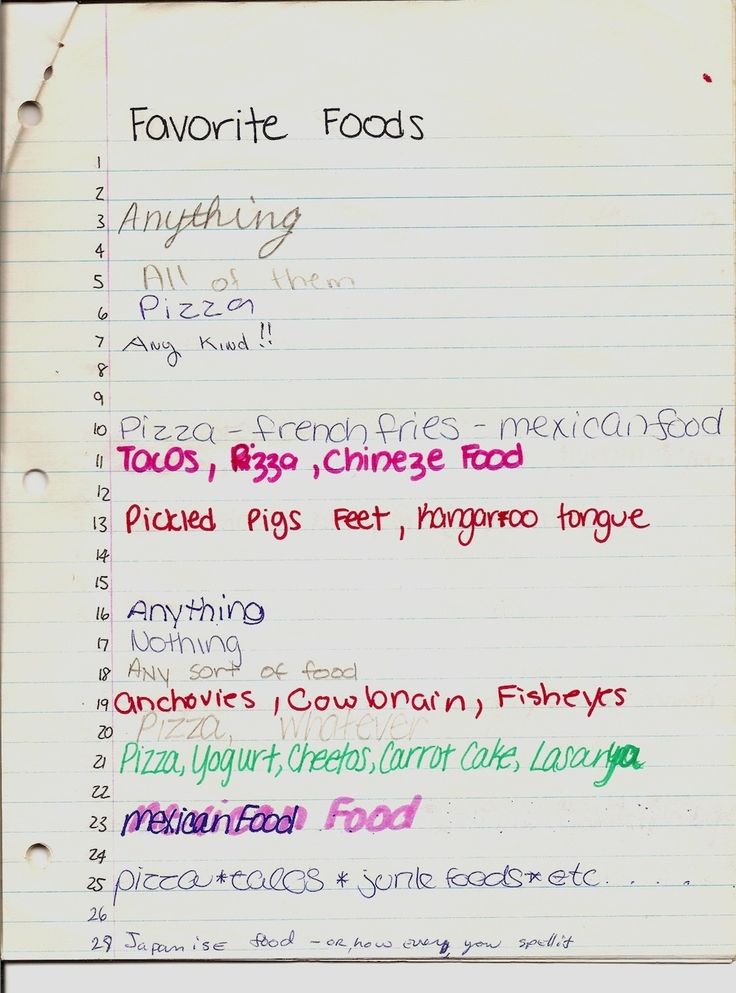 Favorite Foods
1
2
3 Anything
4
5 All of them
6 Pizza
7 Any Kind!!
8
9
10 Pizza - french fries - mexican food
11 Tacos, Pizza, Chineze Food
12
13 Pickled Pigs Feet, Kangaroo tongue
14
15
16 Anything
17 Nothing
18 Any sort of food
19 anchovies, Cow brain, Fisheyes
20 Pizza, Whatever
21 Pizza, Yogurt, Cheetos, Carrot Cake, Lasanya
22
23 mexican Food
24
25 pizza*tacos * junk foods* etc.....
26
28 Japanise food - or, how every you spell it